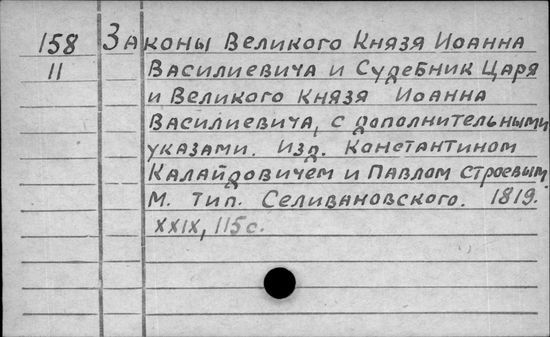 158 Законы Великого Князя Иоанна
II Василиевича и Судебник Царя
и Великого Князя Иоанна
Василиевича, с дополнительными
указами. Изд. Константином
Калайдовичем и Павлом Строевым
М. Тип. Селивановского. 1819.
XXIX, 115с.